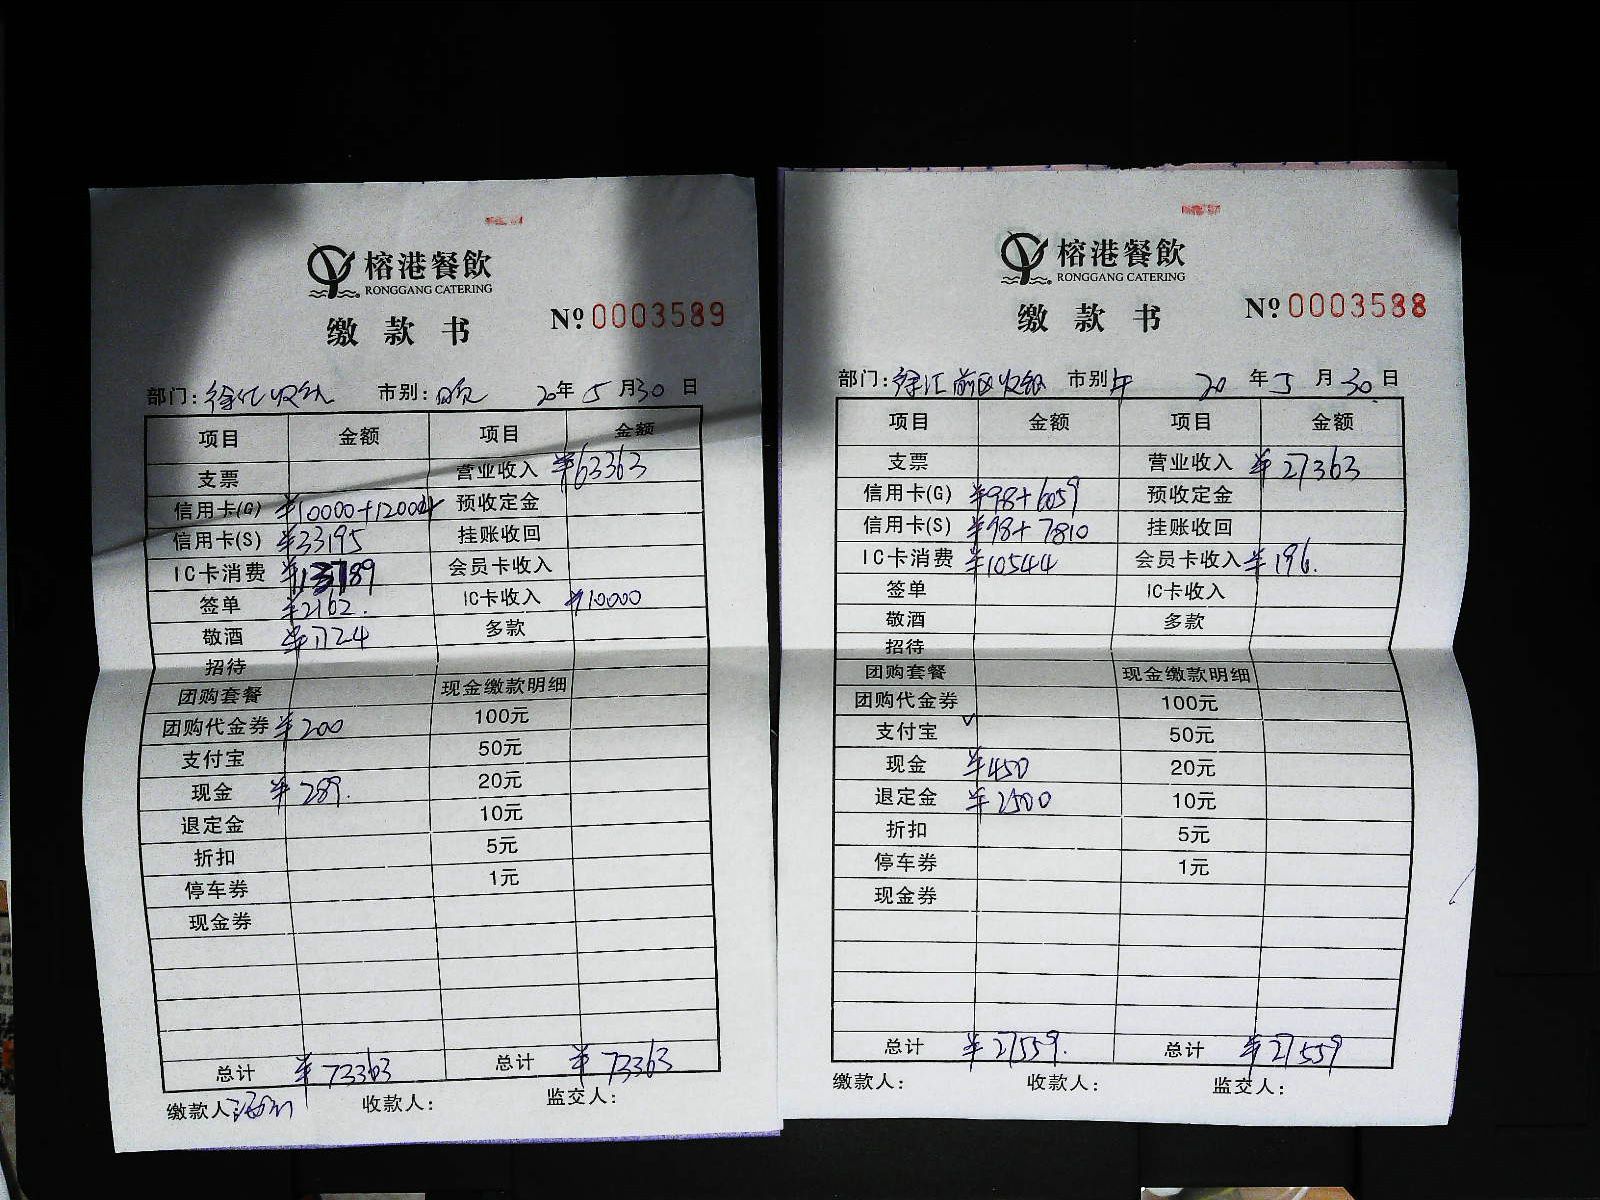 榕港餐飲
RONGGANG CATERING
缴款书
№ 0003589
部门: 徐汇收银 市别: 晚 20年 5月30日
项目 金额 项目 金额
支票 营业收入 ¥63363
信用卡(G) ¥10000+12004 预收定金
信用卡(S) ¥33195 挂账收回
IC卡消费 会员卡收入
签单 ¥2162. IC卡收入 ¥10000
敬酒 ¥1724 多款
招待
团购套餐 现金缴款明细
团购代金券 ¥200 100元
支付宝 50元
现金 ¥289. 20元
退定金 10元
折扣 5元
停车券 1元
现金券
总计 ¥73363 总计 ¥73363
缴款人: 收款人: 监交人:
榕港餐飲
RONGGANG CATERING
缴款书
№ 0003588
部门: 徐汇前区收银 市别 午 20年 5月30.日
项目 金额 项目 金额
支票 营业收入 ¥27363
信用卡(G) ¥98+6059 预收定金
信用卡(S) ¥98+7810 挂账收回
IC卡消费 ¥10544 会员卡收入 ¥196.
签单 IC卡收入
敬酒 多款
招待
团购套餐 现金缴款明细
团购代金券 100元
支付宝 50元
现金 ¥450 20元
退定金 ¥2500 10元
折扣 5元
停车券 1元
现金券
总计 ¥27559. 总计 ¥27559
缴款人: 收款人: 监交人: